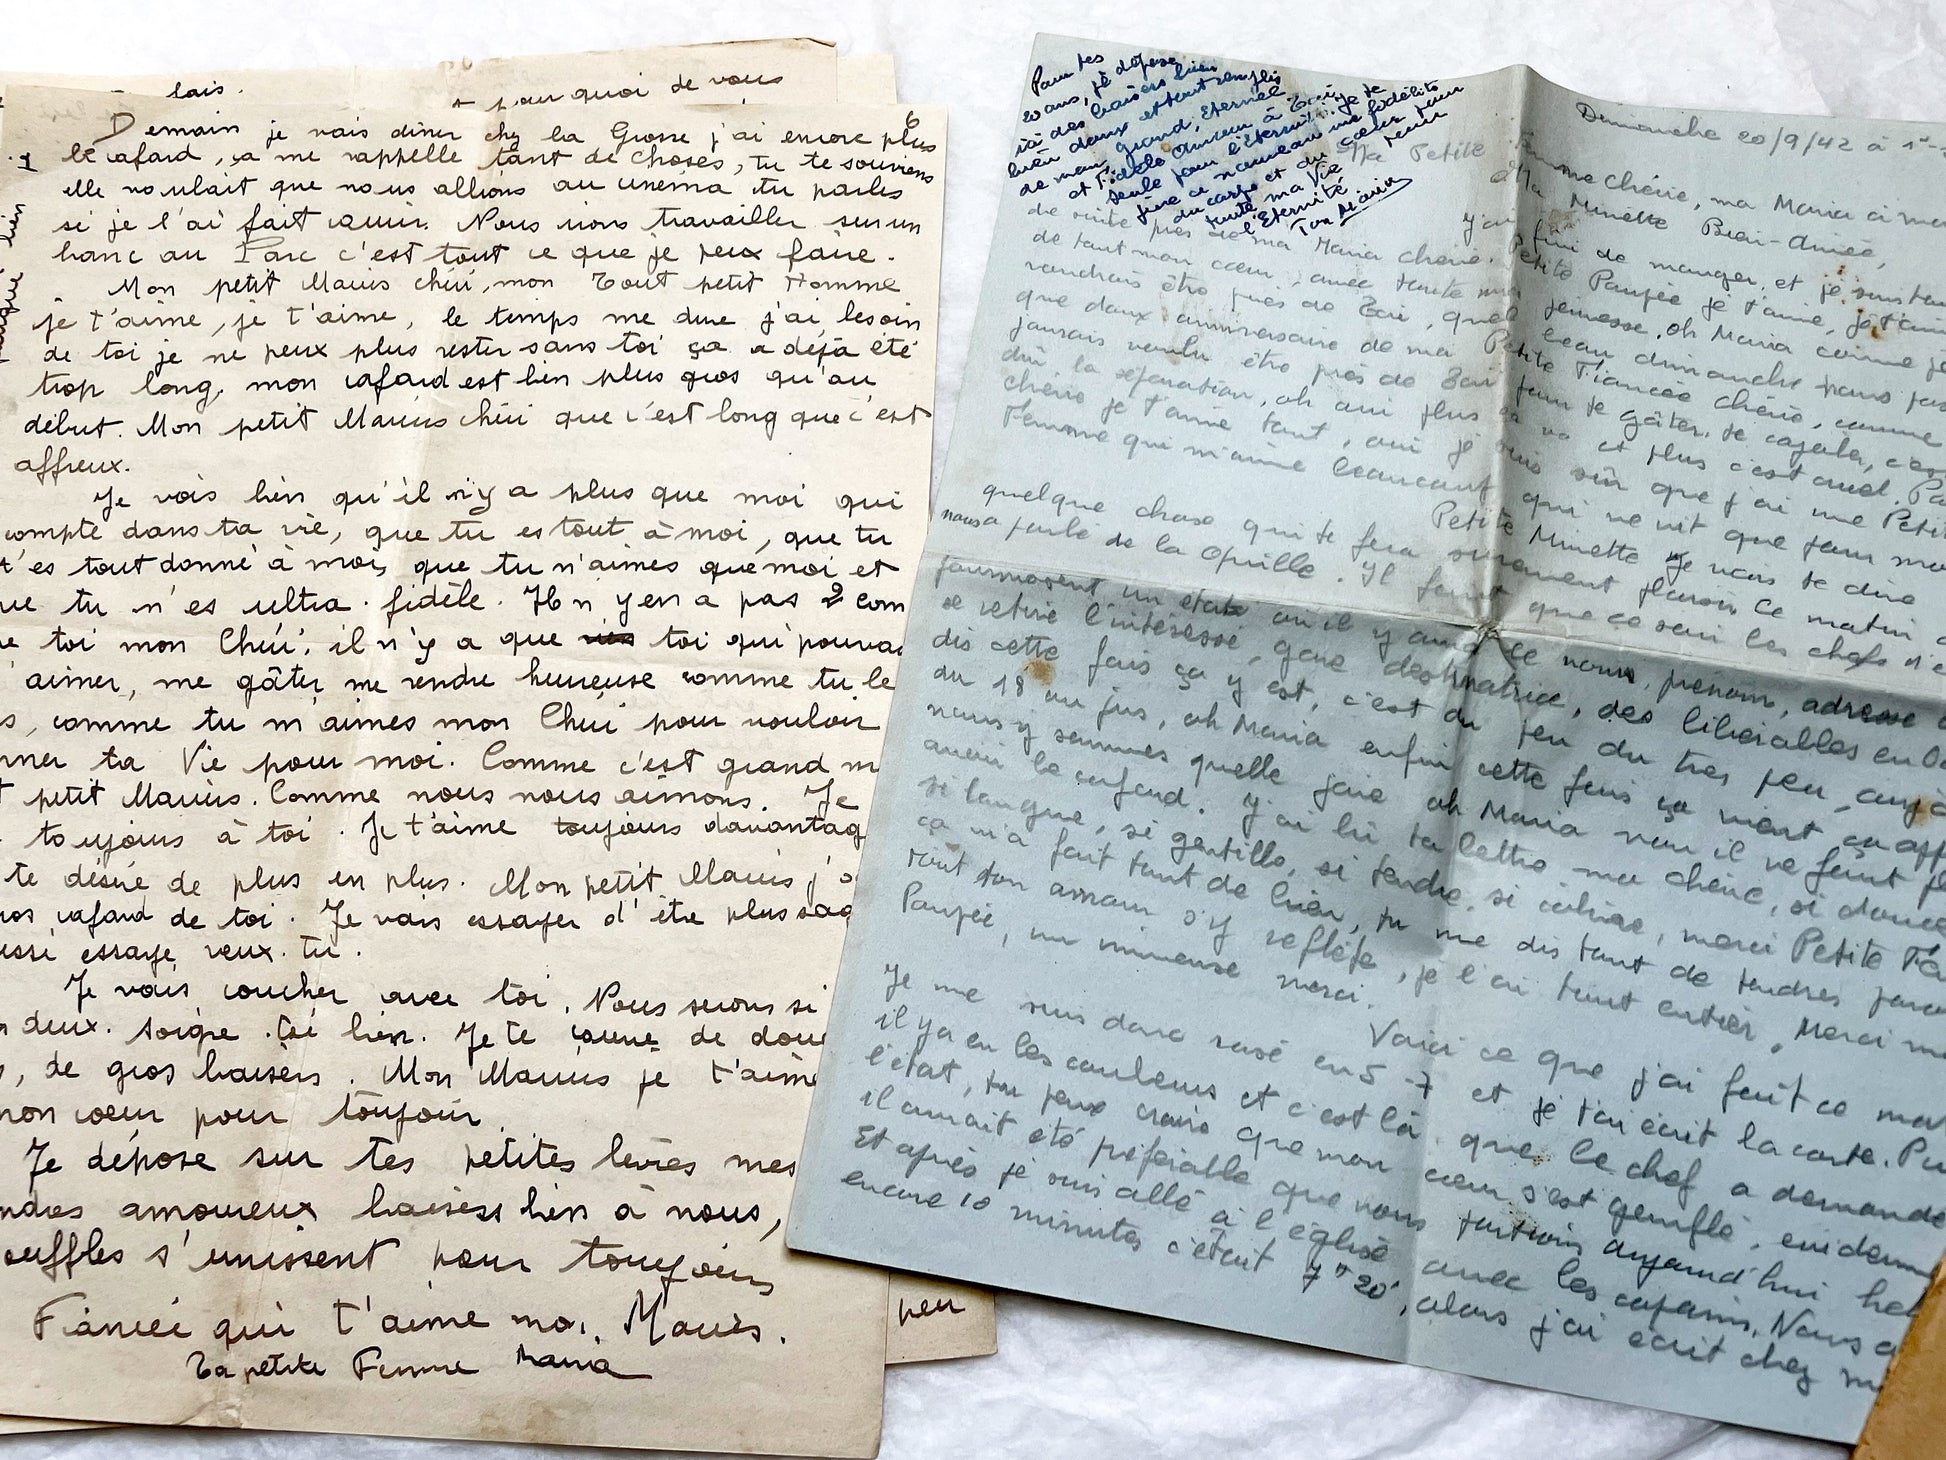 lais.
pourquoi de vous
6
Demain je vais diner chez la Grosse j'ai encore plus
le cafard, ça me rappelle tant de choses, tu te souviens
elle voulait que nous allions au cinéma tu parles
si je l'ai fait courir. Nous irons travailler sur un
banc au Parc c'est tout ce que je peux faire.
Mon petit Marius chéri, mon Tout petit Homme
je t'aime, je t'aime, le temps me dure j'ai besoin
de toi je ne peux plus rester sans toi ça a déjà été
trop long. mon cafard est bien plus gros qu'au
début. Mon petit Marius chéri que c'est long que c'est
affreux.
Je vois bien qu'il n'y a plus que moi qui
compte dans ta vie, que tu es tout à moi, que tu
t'es tout donné à moi, que tu n'aimes que moi et
que tu m'es ultra-fidèle. Il n'y en a pas 2 com
toi mon Chéri, il n'y a que rien toi qui pouvai
aimer, me gâter, me rendre heureuse comme tu le
comme tu m'aimes mon Chéri pour vouloir
ta Vie pour moi. Comme c'est grand m
petit Marius. Comme nous nous aimons. Je
toujours à toi. Je t'aime toujours davantag
te désire de plus en plus. Mon petit Marius j'
cafard de toi. Je vais essayer d'être plus sag
essaye, veux-tu.
Je vais coucher avec toi. Nous serons si
deux. soigne-toi bien. Je te couvre de dou
de gros baisers. Mon Marius je t'aime
mon coeur pour toujour
Je dépose sur tes petites lèvres mes
amoureux baisers bien à nous,
souffles s'unissent pour toujours
Fiancée qui t'aime moi, Marius.
Ta petite Femme Maria
peu
Pour tes
20 ans, je dépose
ici des baisers bien
bien doux et tout remplis
de mon grand, Eternel
et Fidèle Amour à Toi, je te
seule pour l'Eternité, je te
jure à nouveau ma fidélité
du corps et du coeur pour
toute ma Vie pour
l'Eternité
Ton Marius
Dimanche 20/9/42 à 1h
Ma Petite Femme Chérie, ma Maria à moi
Ma Minette Bien-Aimée,
J'ai fini de manger, et je suis tou
de suite près de ma Maria Chérie. Petite Poupée je t'aime, je t'aim
de tout mon coeur, avec toute ma jeunesse, oh Maria comme je
voudrais être près de Toi, quel beau dimanche nous pas
que doux anniversaire de ma Petite Fiancée Chérie, comme
j'aurais voulu être près de Toi pour te gâter, te cajoler, c'es
dur la séparation, oh oui plus ça va et plus c'est cruel. Pa
chérie je t'aime tant, oui je suis sûr que j'ai une Petit
Femme qui m'aime beaucoup qui ne vit que pour mo
Petite Minette je vais te dire
quelque chose qui te fera surement plaisir. Ce matin o
nous a parlé de la Quille. Il faut que ce soir les chefs d'é
fournissent un état où il y aura le nom, prénom, adresse
se retire l'intéressé, gare destinatrice, des libérables en Oc
dis cette fois ça y est, c'est du feu du tres peu, aujo
du 18 au jus, oh Maria enfin cette fois ça vient ça app
nous y sommes quelle joie oh Maria non il ne faut pl
avoir le cafard. J'ai lu ta lettre ma chérie, si douce
si longue, si gentille, si tendre, si caline, merci Petite Fia
ça m'a fait tant de bien, tu me dis tant de tendres paro
tout ton amour s'y reflète, je l'ai tout entier. Merci m
Poupée, un immense merci.
Voici ce que j'ai fait ce mat
Je me suis donc rasé en 5-7 et je t'ai écrit la carte. Pu
il y a eu les couleurs et c'est là que le chef a demandé
l'état, tu peux croire que mon coeur s'est gonflé, evidem
il aurait été préférable que nous partions aujourd'hui
Et après je suis allé à l'église avec les copains. Nous a
encore 10 minutes c'était 7h20', alors j'ai écrit chez